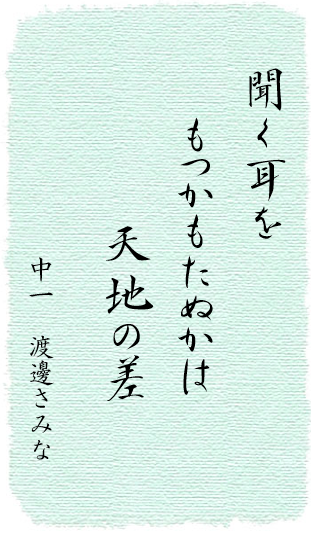 聞く耳を
もつかもたぬかは
天地の差
中一　渡邊さみな